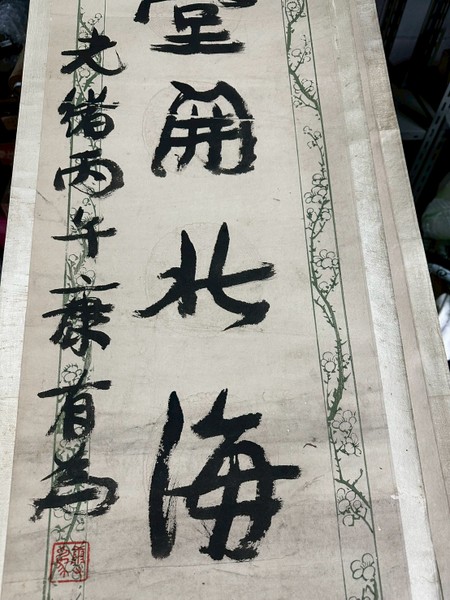 堂開北海
光緒丙午康有為